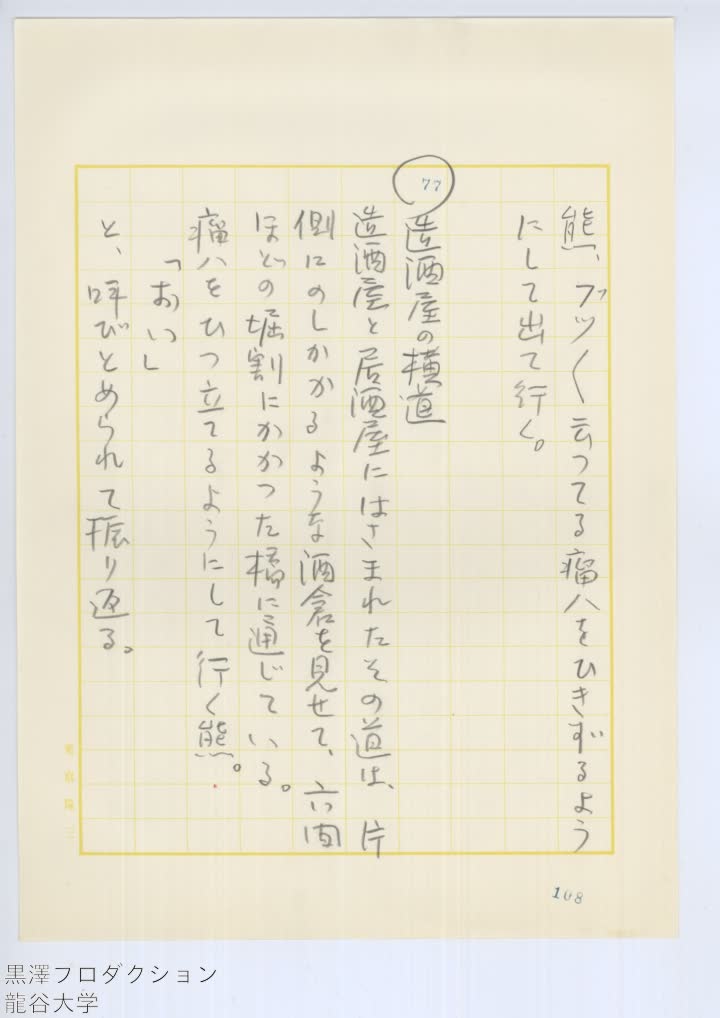 熊、ブツ〱云つてる瘤八をひきずるよう
にして出て行く。
77
造酒屋の横道
造酒屋と居酒屋にはさまれたその道は、片
側にのしかかるような酒倉を見せて、六間
ほどの堀割にかかつた橋に通じている。
瘤八をひつ立てるようにして行く熊。
「おい」
と、呼びとめられて振り返る。
108
黒澤プロダクション
龍谷大学